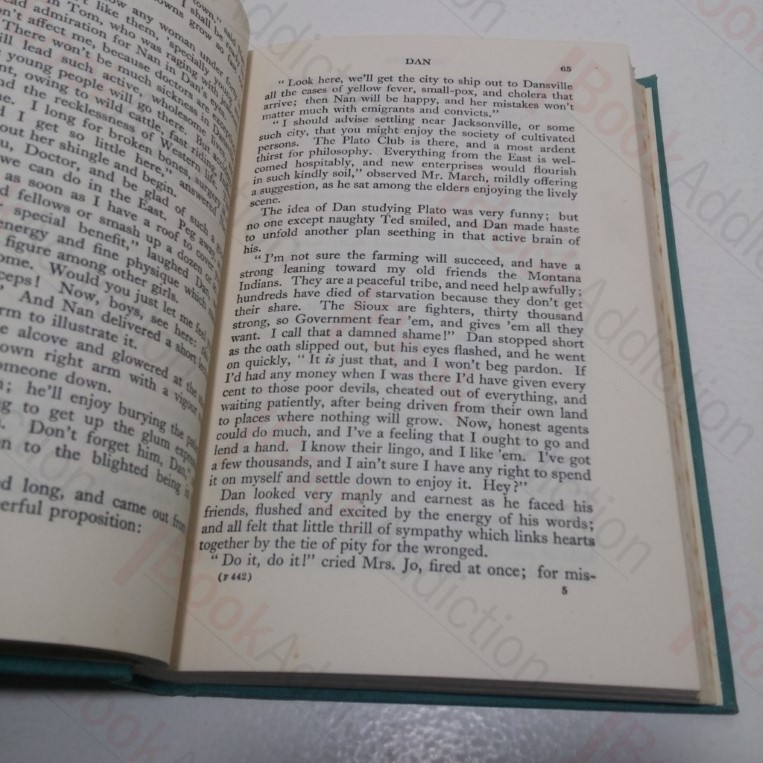 town," said
shall be
owns grow so
ow any woman under
't like them, specially young
in Tom, who was raging with
ead admiration for Nan in Dan's
n't affect me, because doctors are exempt
There won't be much sickness in Dans
ill lead such active, wholesome lives
young people will go there. But
nt, owing to wild cattle, fast riding,
nd the recklessness of Western life,
e. I long for broken bones, surgery
d I get so little here," answered
out her shingle and begin.
u, Doctor, and be glad of such a
we can do in the East. Peg away
as soon as I have a roof to cover
d fellows or smash up a dozen or
r special benefit," laughed Dan
energy and fine physique which
figure among other girls.
ome. Would you just let me feel
ceps! Now, boys, see here:
And Nan delivered a short
rm to illustrate it.
e alcove and glowered at the
own right arm with a vigour
omeone down.
n; he'll enjoy burying the
ng to get up the glum
s. Don't forget him, Dan,"
on to the blighted being
d long, and came out from
erful proposition:
DAN 65
" Look here, we'll get the city to ship out to Dansville
all the cases of yellow fever, small-pox, and cholera that
arrive; then Nan will be happy, and her mistakes won't
matter much with emigrants and convicts."
" I should advise settling near Jacksonville, or some
such city, that you might enjoy the society of cultivated
persons. The Plato Club is there, and a most ardent
thirst for philosophy. Everything from the East is wel-
comed hospitably, and new enterprises would flourish
in such kindly soil," observed Mr. March, mildly offering
a suggestion, as he sat among the elders enjoying the lively
scene.
The idea of Dan studying Plato was very funny; but
no one except naughty Ted smiled, and Dan made haste
to unfold another plan seething in that active brain of
his.
" I'm not sure the farming will succeed, and have a
strong leaning toward my old friends the Montana
Indians. They are a peaceful tribe, and need help awfully;
hundreds have died of starvation because they don't get
their share. The Sioux are fighters, thirty thousand
strong, so Government fear 'em, and gives 'em all they
want. I call that a damned shame!" Dan stopped short
as the oath slipped out, but his eyes flashed, and he went
on quickly, " It is just that, and I won't beg pardon. If
I'd had any money when I was there I'd have given every
cent to those poor devils, cheated out of everything, and
waiting patiently, after being driven from their own land
to places where nothing will grow. Now, honest agents
could do much, and I've a feeling that I ought to go and
lend a hand. I know their lingo, and I like 'em. I've got
a few thousands, and I ain't sure I have any right to spend
it on myself and settle down to enjoy it. Hey?"
Dan looked very manly and earnest as he faced his
friends, flushed and excited by the energy of his words;
and all felt that little thrill of sympathy which links hearts
together by the tie of pity for the wronged.
" Do it, do it!" cried Mrs. Jo, fired at once; for mis-
(F 442) 5
BookAddiction